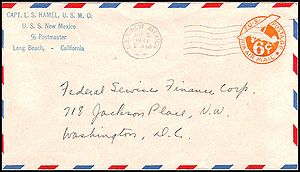 CAPT. L. S. HAMEL, U. S. M. C.
U. S. S. New Mexico
℅ Postmaster
Long Beach, - California
U.S. POSTAGE
6¢
AIR MAIL
Federal Services Finance Corp.
718 Jackson Place, N.W.
Washington, D.C.